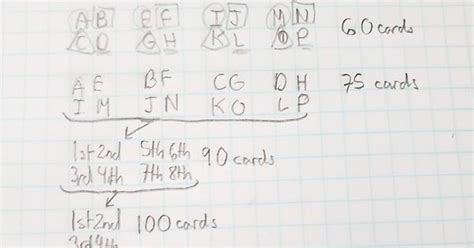 A B E F I J M N
C D G H K L O P 60 cards
A E B F C G D H 75 cards
I M J N K O L P
1st 2nd 5th 6th 90 cards
3rd 4th 7th 8th
1st 2nd 100 cards
3rd 4th